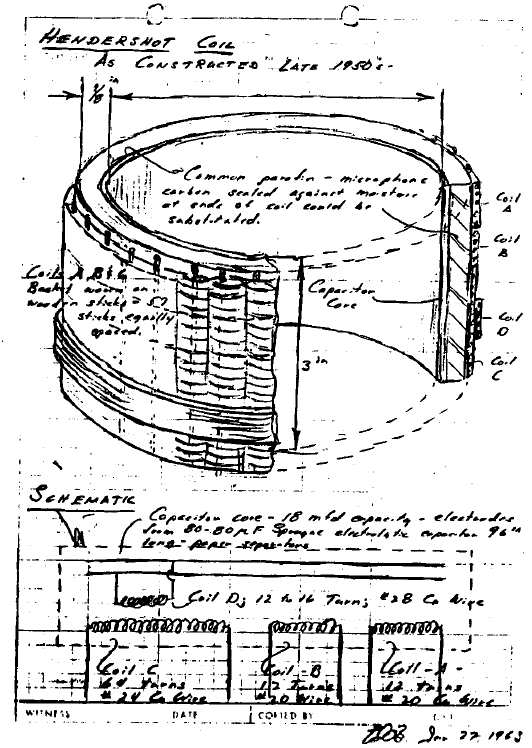 HENDERSHOT COIL
AS CONSTRUCTED LATE 1950's-
in
Common parafin - microphone
carbon sealed against moisture
at ends of coil could be
substituted.
Coil
A
Coil
B
Coils A, B & C
Basket wound on
wooden sticks = 57
sticks equally
spaced.
Capacitor
Core
3 in
Coil
D
Coil
C
SCHEMATIC
Capacitor core - 18 mfd capacity - electrodes
from 80-80 µF Sprague electrolytic capacitor 96"
long - paper separators
Coil D; 12 to 16 Turns; #28 Cu Wire
Coil C
turns
# 24 Cu Wire
Coil - B
12 turns
#20 Wire
Coil - A -
12 turns
# 20 Cu Wire
WITNESS
DATE
COPIED BY
Jan 27 1963